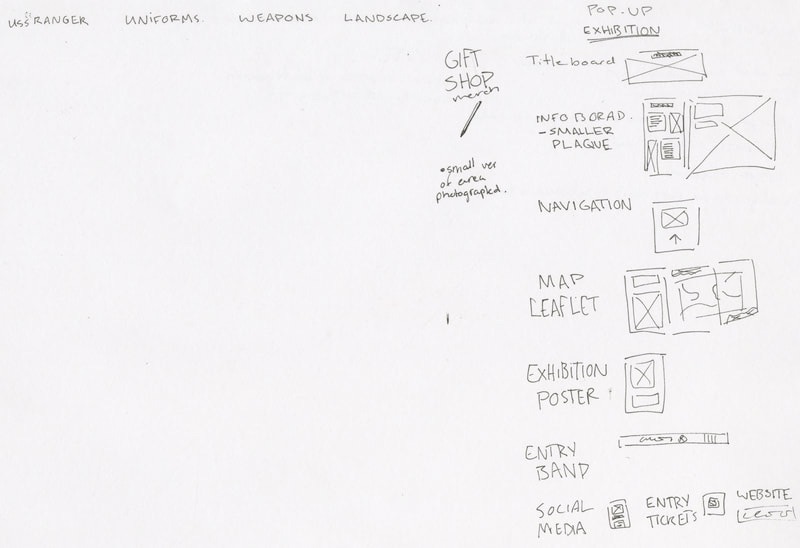 USS RANGER UNIFORMS. WEAPONS LANDSCAPE.
POP-UP
EXHIBITION
GIFT
SHOP
merch
• small ver
of area
photographed.
Titleboard
INFO BORAD.
- SMALLER
PLAQUE
NAVIGATION
MAP
LEAFLET
EXHIBITION
POSTER
ENTRY
BAND
SOCIAL
MEDIA
ENTRY
TICKETS
WEBSITE